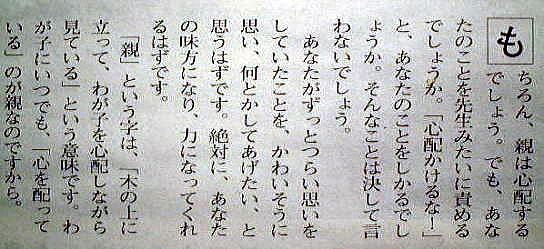 もちろん、親は心配する
でしょう。でも、あな
たのことを先生みたいに責める
でしょうか。「心配かけるな！」
と、あなたのことをしかるでし
ょうか。そんなことは決して言
わないでしょう。
あなたがずっとつらい思いを
していたことを、かわいそうに
思い、何とかしてあげたい、と
思うはずです。絶対に、あなた
の味方になり、力になってくれ
るはずです。
「親」という字は、「木の上に
立って、わが子を心配しながら
見ている」という意味です。わ
が子にいつでも、「心を配って
いる」のが親なのですから。